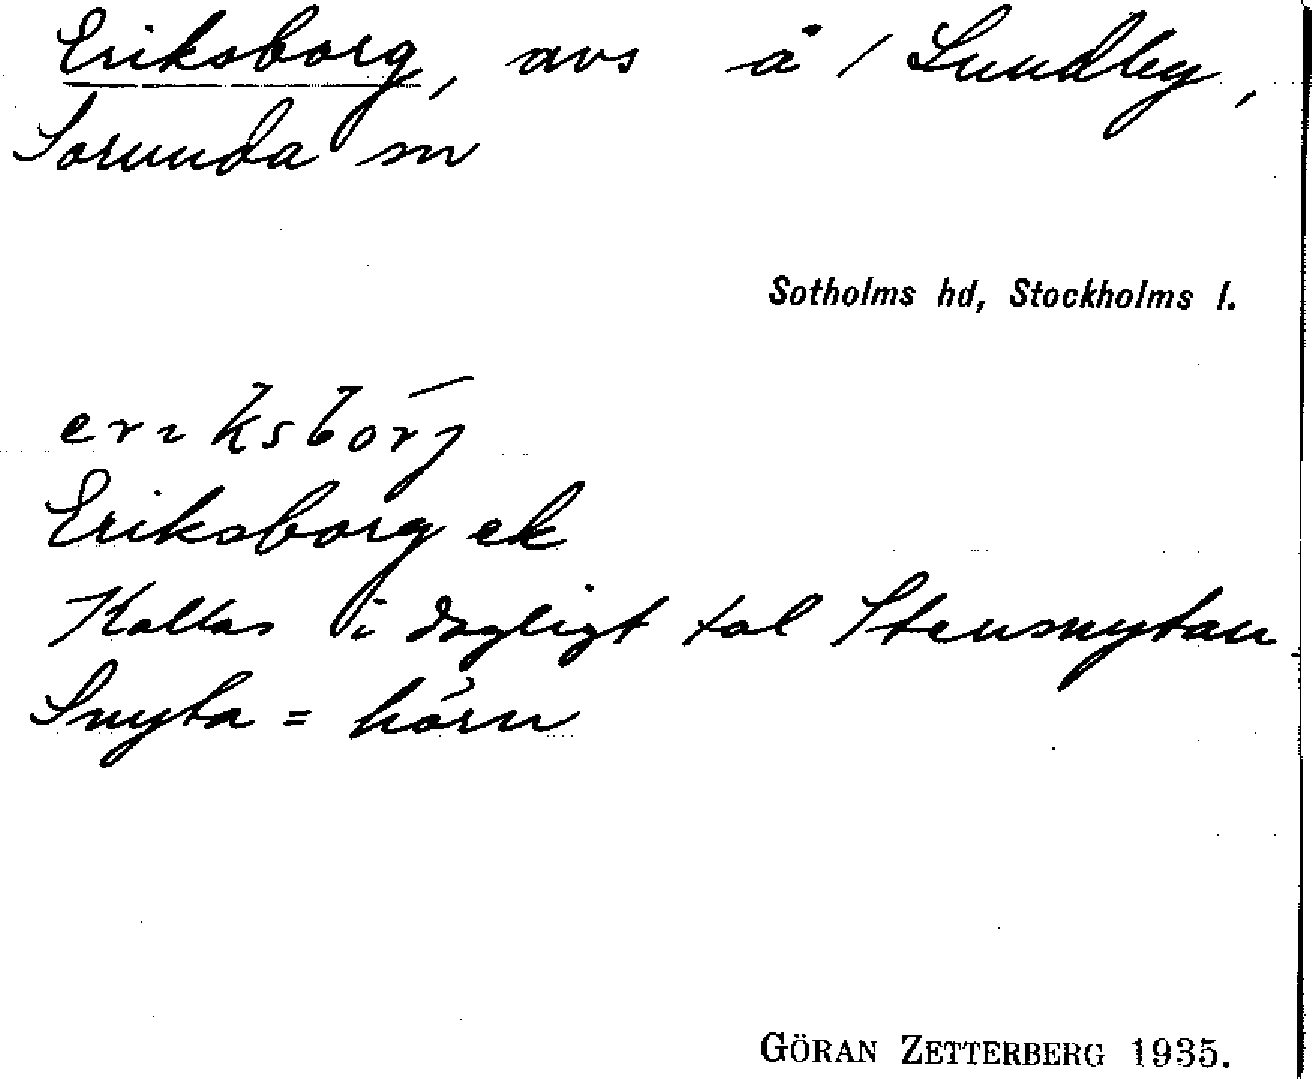 Eriksborg, avs å 1 Lundby,
Sorunda sn
Sotholms hd, Stockholms l.
erıksbórj
Eriksborg ek
Kallas i dagligt tal Stensnytan
Snyta = hörn
GÖRAN ZETTERBERG 1935.